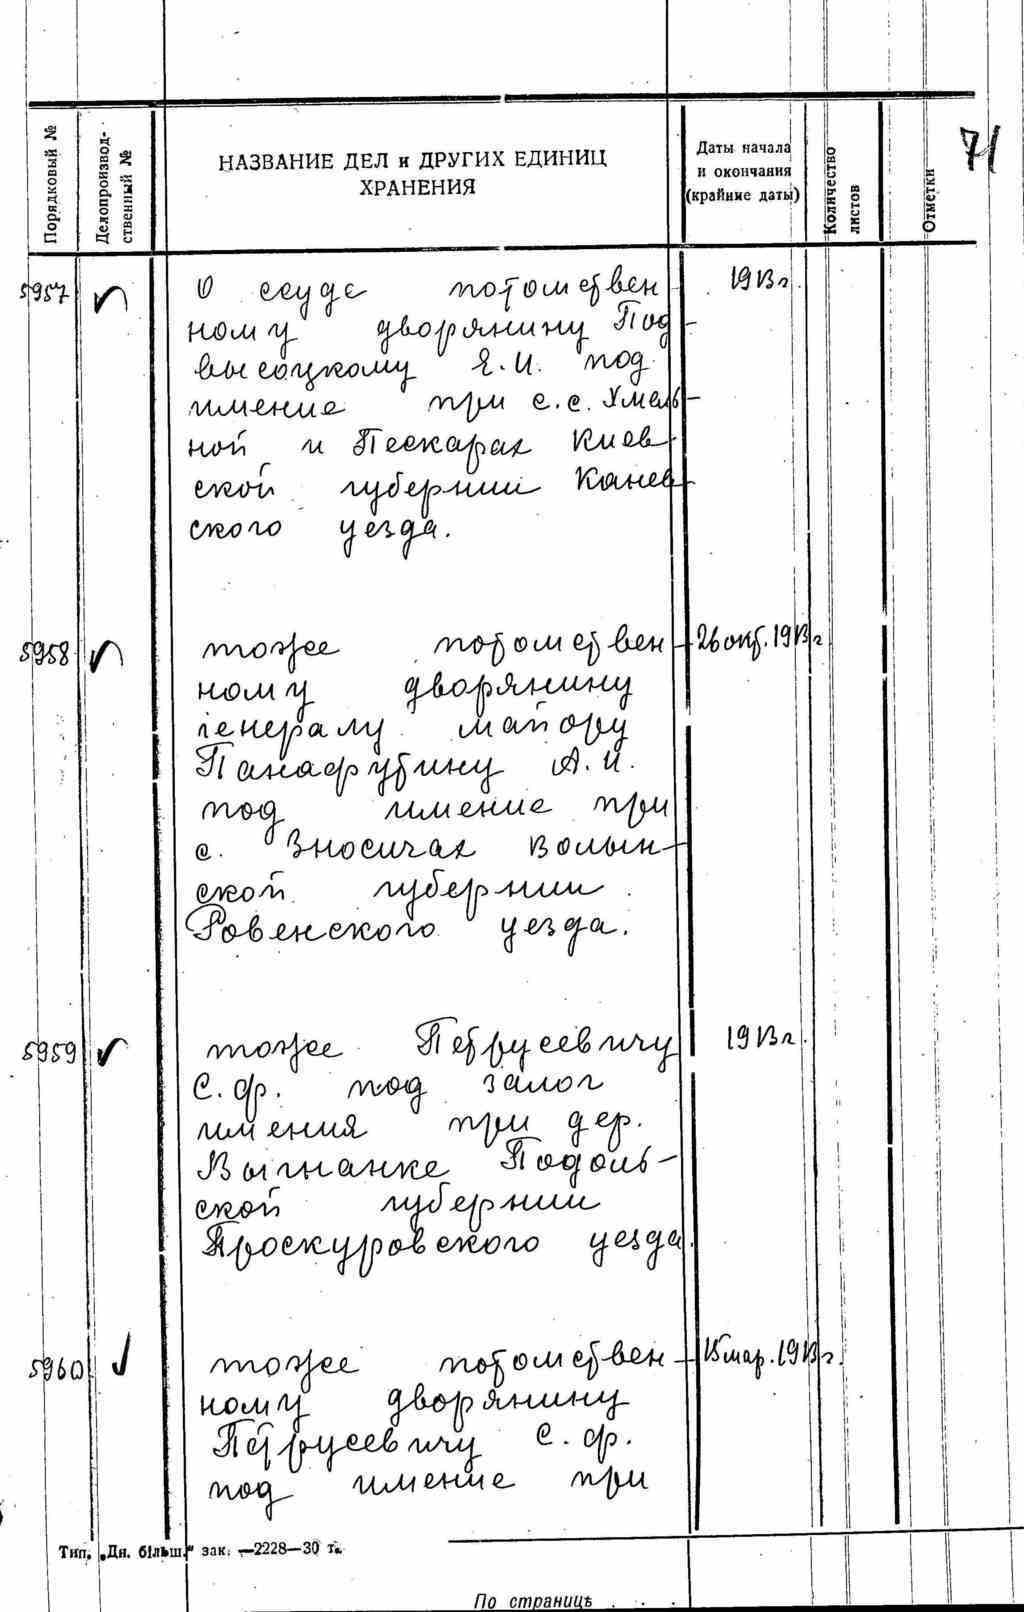 71
Порядковый №
Делопроизвод-
ственный №
НАЗВАНИЕ ДЕЛ и ДРУГИХ ЕДИНИЦ
ХРАНЕНИЯ
Даты начала
и окончания
(крайние даты)
Количество
листов
Отметки
5957
О ссуде потомствен
1913 г.
ному дворянину Под-
высоцкому Я.И. под
имение при с.с. Хмель-
ной и Пескарах Киев-
ской губернии Канев-
ского уезда.
5958
тоже потомствен-
26 окт. 1913 г.
ному дворянину
генералу майору
Панафутину А.И.
под имение при
с. Зносичах Волын-
ской губернии
Ровенского уезда.
5959
тоже Петрусевичу
1913 г.
С.Ф. под залог
имения при дер.
Выгнанке Подоль-
ской губернии
Проскуровского уезда.
5960
тоже потомствен-
15 мар. 1913 г.
ному дворянину
Петрусевичу С.Ф.
под имение при
Тип. „Дн. більш." зак. —2228—30 т.
По страницѣ